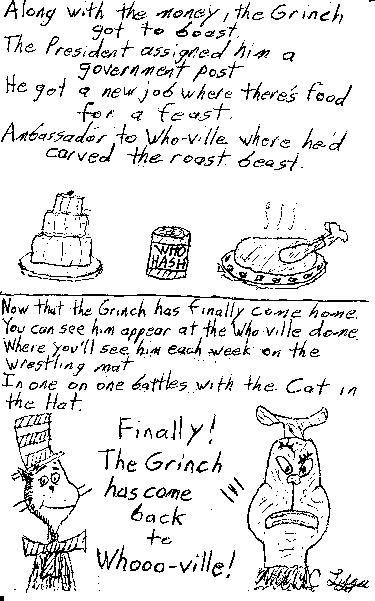 Along with the money, the Grinch
got to boast.
The President assigned him a
government post
He got a new job where there's food
for a feast.
Ambassador to Who-ville where he'd
carved the roast beast.
WHO
HASH
Now that the Grinch has finally come home.
You can see him appear at the Who ville dome.
Where you'll see him each week on the
wrestling mat
In one on one battles with the Cat in
the Hat.
Finally!
The Grinch
has come
back
to
Whooo-ville!